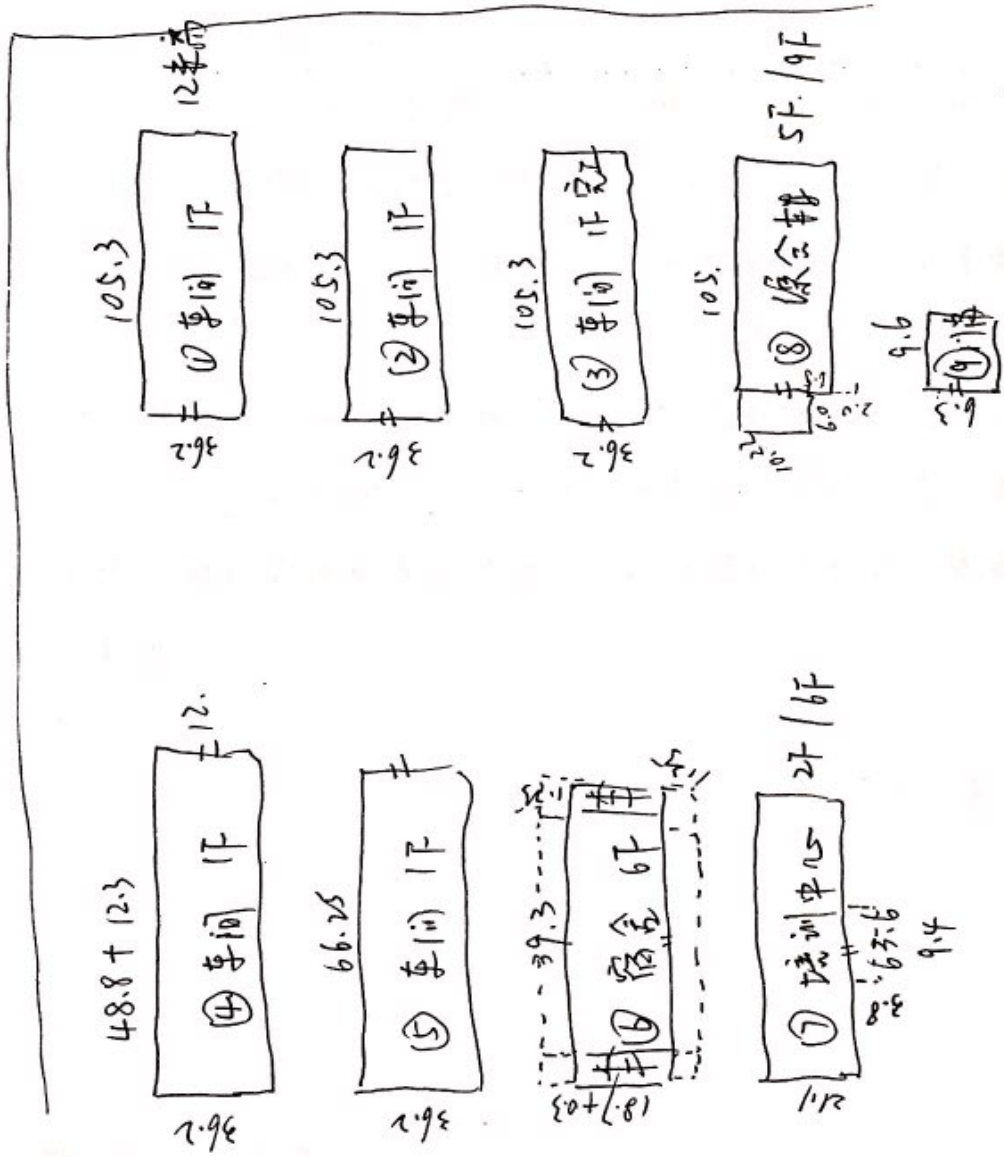 12.
105.3
① 车间 1F
36.2
105.3
② 车间 1F
36.2
105.3
③ 车间 1F
36.2
105.
⑧ 综合楼
5F/9F
10.22
2.0
9.6
⑨
6.3
48.8 + 12.3
④ 车间 1F
12.
36.2
66.25
⑤ 车间 1F
36.2
39.3
⑥ 宿舍 6F
18.7+0.3
⑦ 培训中心
2F/6F
21.1
3.8
9.4